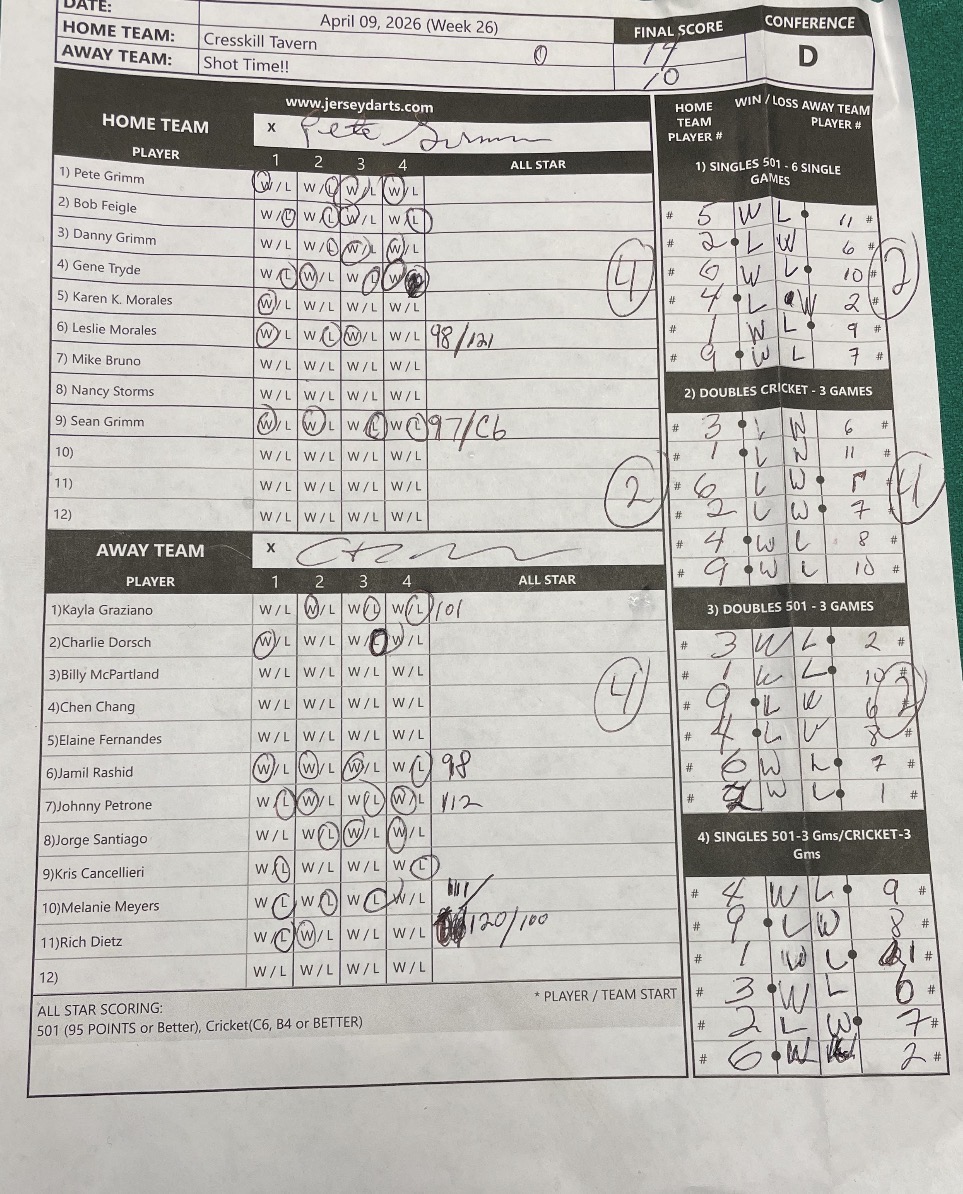 DATE: April 09, 2026 (Week 26)
HOME TEAM: Cresskill Tavern
AWAY TEAM: Shot Time!! 0
FINAL SCORE
14
10
CONFERENCE
D
www.jerseydarts.com
HOME TEAM x Pete Grimm
PLAYER 1 2 3 4 ALL STAR
1) Pete Grimm W/L W/L W/L W/L
2) Bob Feigle W/L W/L W/L W/L
3) Danny Grimm W/L W/L W/L W/L
4) Gene Tryde W/L W/L W/L W
5) Karen K. Morales W/L W/L W/L W/L
6) Leslie Morales W/L W/L W/L W/L 98/121
7) Mike Bruno W/L W/L W/L W/L
8) Nancy Storms W/L W/L W/L W/L
9) Sean Grimm W/L W/L W/L W/L 97/C6
10) W/L W/L W/L W/L
11) W/L W/L W/L W/L
12) W/L W/L W/L W/L
4
2
AWAY TEAM x
PLAYER 1 2 3 4 ALL STAR
1)Kayla Graziano W/L W/L W/L W/L 101
2)Charlie Dorsch W/L W/L W/L W/L
3)Billy McPartland W/L W/L W/L W/L
4)Chen Chang W/L W/L W/L W/L
5)Elaine Fernandes W/L W/L W/L W/L
6)Jamil Rashid W/L W/L W/L W/L 98
7)Johnny Petrone W/L W/L W/L W/L 112
8)Jorge Santiago W/L W/L W/L W/L
9)Kris Cancellieri W/L W/L W/L W/L
10)Melanie Meyers W/L W/L W/L W/L
11)Rich Dietz W/L W/L W/L W/L 120/100
12) W/L W/L W/L W/L
4
ALL STAR SCORING: * PLAYER / TEAM START
501 (95 POINTS or Better), Cricket(C6, B4 or BETTER)
HOME TEAM PLAYER # WIN / LOSS AWAY TEAM PLAYER #
1) SINGLES 501 - 6 SINGLE GAMES
# 5 W L 11 #
# 2 L W 6 #
# 6 W L 10 #
# 4 L W 2 #
# 1 W L 9 #
# 9 W L 7 #
2
2) DOUBLES CRICKET - 3 GAMES
# 3 L W 6 #
# 1 L W 11 #
# 6 L W #
# 2 L W 7 #
# 4 W L 8 #
# 9 W L 10 #
4
3) DOUBLES 501 - 3 GAMES
# 3 W L 2 #
# 1 W L 10 #
# 9 L W 6 #
# 4 L W 8 #
# 6 W L 7 #
# 2 W L 1 #
2
4) SINGLES 501-3 Gms/CRICKET-3 Gms
# 4 W L 9 #
# 9 L W 8 #
# 1 W L 1 #
# 3 W L 6 #
# 2 L W 7 #
# 6 W 2 #